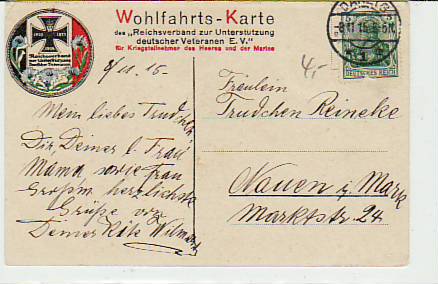 Wohlfahrts-Karte
des „Reichsverband zur Unterstützung
deutscher Veteranen E. V."
für Kriegsteilnehmer des Heeres und der Marine
1870 1871
Reichsverband
zur Unterstützung
Deutscher Veteranen
8.11.15
DEUTSCHES REICH
4,-
8/11. 15.-
Mein liebes Trudchen
Dir, Deiner l. Frau
Mama, sowie Frau
Großm. herzlichste
Grüße von
Deiner Käte
Fräulein
Trudchen Reineke
Nauen i/Mark
Marktstr. 24